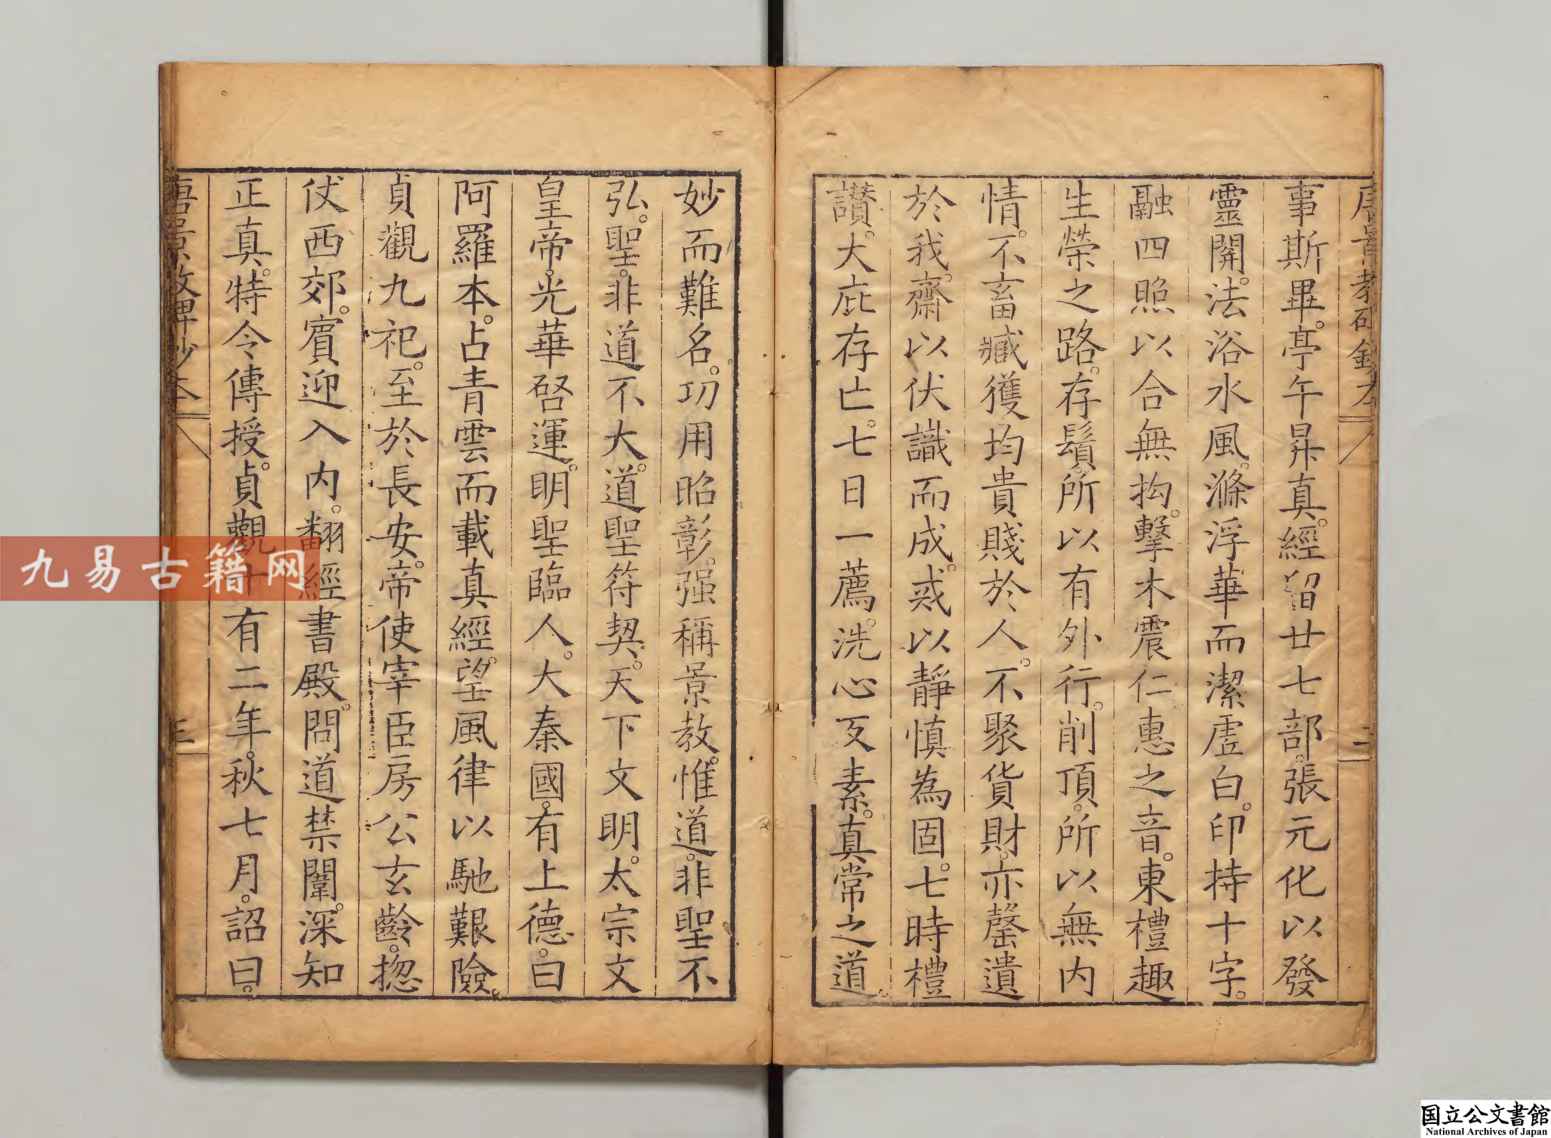 事斯畢。亭午昇真。經留廿七部。張元化以發
靈關。法浴水風。滌浮華而潔虛白。印持十字。
融四照以合無拘。擊木震仁惠之音。東禮趣
生榮之路。存鬚所以有外行。削頂。所以無内
情。不畜臧獲均貴賤於人。不聚貨財。亦罄遺
於我。齋以伏識而成。戒以靜慎為固。七時禮
讃。大庇存亡。七日一薦。洗心反素。真常之道。
妙而難名。功用昭彰。强稱景教。惟道。非聖不
弘。聖。非道不大。道聖符契。天下文明。太宗文
皇帝。光華啓運。明聖臨人。大秦國。有上德。曰
阿羅本。占青雲而載真經。望風律以馳艱險。
貞觀九祀。至於長安。帝使宰臣房公玄齡。揔
仗西郊。賓迎入内。翻經書殿。問道禁闈。深知
正真。特令傳授。貞觀十有二年。秋七月。詔曰。
九易古籍网
国立公文書館
National Archives of Japan